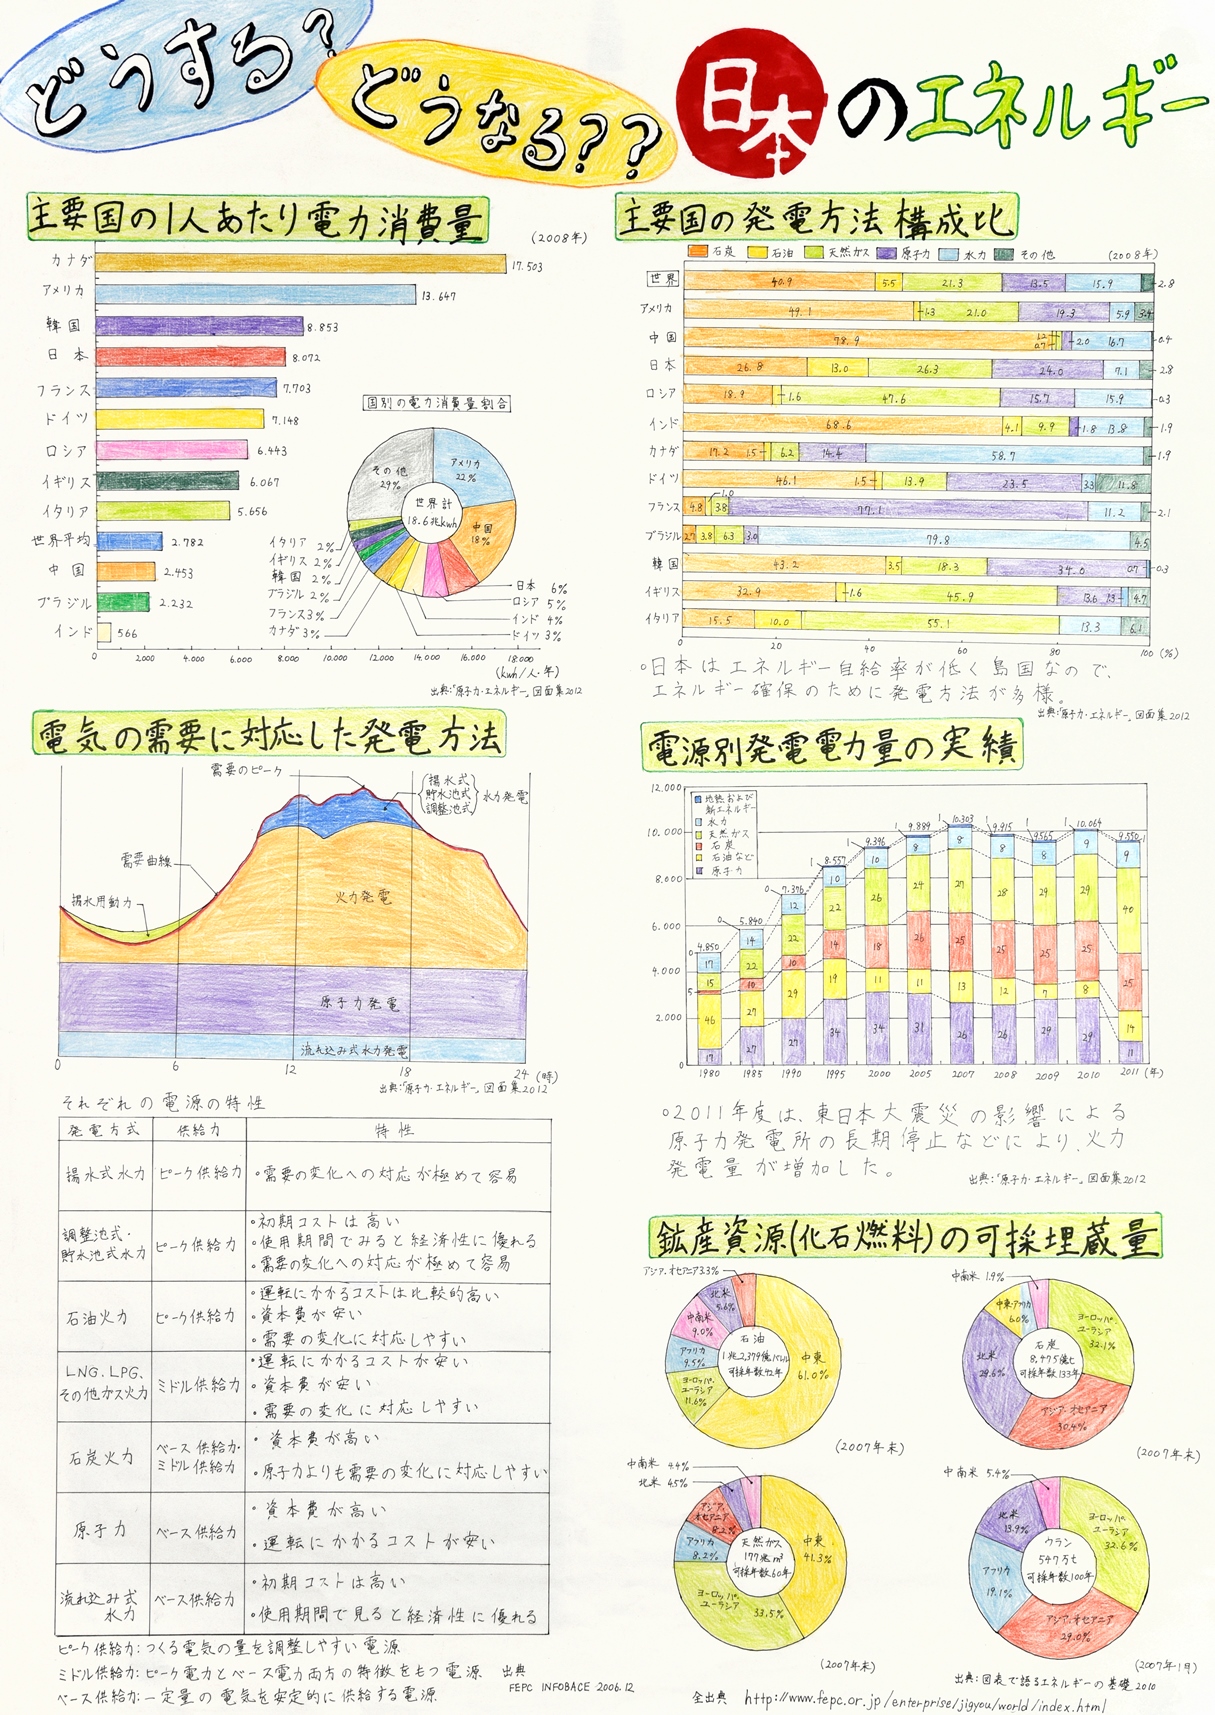 どうする?
どうなる??
日本のエネルギー
主要国の1人あたり電力消費量
(2008年)
カナダ 17.503
アメリカ 13.647
韓国 8.853
日本 8.072
フランス 7.703
ドイツ 7.148
ロシア 6.443
イギリス 6.067
イタリア 5.656
世界平均 2.782
中国 2.453
ブラジル 2.232
インド 566
0 2.000 4.000 6.000 8.000 10.000 12.000 14.000 16.000 18.000
(kwh/人・年)
国別の電力消費量割合
世界計
18.6兆kwh
アメリカ
22%
中国
18%
日本 6%
ロシア 5%
インド 4%
ドイツ 3%
カナダ 3%
フランス3%
ブラジル 2%
韓国 2%
イギリス 2%
イタリア 2%
その他
29%
出典:「原子力・エネルギー」図面集2012
主要国の発電方法構成比
石炭 石油 天然ガス 原子力 水力 その他 (2008年)
世界 40.9 5.5 21.3 13.5 15.9 2.8
アメリカ 49.1 1.3 21.0 19.3 5.9 3.4
中国 78.9 0.7 1.2 2.0 16.7 0.4
日本 26.8 13.0 26.3 24.0 7.1 2.8
ロシア 18.9 1.6 47.6 15.7 15.9 0.3
インド 68.6 4.1 9.9 1.8 13.8 1.9
カナダ 17.2 1.5 6.2 14.4 58.7 1.9
ドイツ 46.1 1.5 13.9 23.5 3.3 11.8
フランス 4.8 1.0 3.8 77.1 11.2 2.1
ブラジル 2.7 3.8 6.3 3.0 79.8 4.5
韓国 43.2 3.5 18.3 34.0 0.7 0.3
イギリス 32.9 1.6 45.9 13.6 1.3 4.7
イタリア 15.5 10.0 55.1 13.3 6.1
0 20 40 60 80 100 (%)
○日本はエネルギー自給率が低く島国なので、
エネルギー確保のために発電方法が多様。
出典:「原子力・エネルギー」図面集2012
電気の需要に対応した発電方法
需要のピーク
揚水式
貯水池式
調整池式
水力発電
需要曲線
揚水用動力
火力発電
原子力発電
流れ込み式水力発電
0 6 12 18 24 (時)
出典:「原子力・エネルギー」図面集2012
それぞれの電源の特性
発電方式 供給力 特性
揚水式水力 ピーク供給力 ○需要の変化への対応が極めて容易
調整池式・
貯水池式水力 ピーク供給力
○初期コストは高い
○使用期間でみると経済性に優れる
○需要の変化への対応が極めて容易
石油火力 ピーク供給力
○運転にかかるコストは比較的高い
○資本費が安い
○需要の変化に対応しやすい
LNG.LPG、
その他ガス火力 ミドル供給力
○運転にかかるコストが安い
○資本費が安い
○需要の変化に対応しやすい
石炭火力
ベース供給力・
ミドル供給力
○資本費が高い
○原子力よりも需要の変化に対応しやすい
原子力 ベース供給力
○資本費が高い
○運転にかかるコストが安い
流れ込み式
水力 ベース供給力
○初期コストは高い
○使用期間で見ると経済性に優れる
ピーク供給力:つくる電気の量を調整しやすい電源
ミドル供給力:ピーク電力とベース電力両方の特徴をもつ電源
ベース供給力:一定量の電気を安定的に供給する電源
出典
FEPC INFOBACE 2006.12
電源別発電電力量の実績
12.000
10.000
8.000
6.000
4.000
2.000
0
地熱および
新エネルギー
水力
天然ガス
石炭
石油など
原子力
4.850 0 17 15 5 46 17
5.840 0 14 22 10 27 27
7.376 0 12 22 10 29 27
8.557 1 10 22 14 19 34
9.396 1 10 26 18 11 34
9.889 1 8 24 26 11 31
10.303 1 8 27 25 13 26
9.915 1 8 28 25 12 26
9.565 1 8 29 25 7 29
10.064 1 9 29 25 8 29
9.550 1 9 40 25 14 11
1980 1985 1990 1995 2000 2005 2007 2008 2009 2010 2011 (年)
○2011年度は、東日本大震災の影響による
原子力発電所の長期停止などにより、火力
発電量が増加した。
出典:「原子力・エネルギー」図面集2012
鉱産資源(化石燃料)の可採埋蔵量
石油
1兆2,379億バレル
可採年数42年
中東
61.0%
ヨーロッパ・
ユーラシア
11.6%
アフリカ
9.5%
中南米
9.0%
北米
5.6%
アジア・オセアニア3.3%
(2007年末)
石炭
8,475億t
可採年数133年
ヨーロッパ・
ユーラシア
32.1%
アジア・オセアニア
30.4%
北米
29.6%
中東・アフリカ
6.0%
中南米 1.9%
(2007年末)
天然ガス
177兆m³
可採年数60年
中東
41.3%
ヨーロッパ・
ユーラシア
33.5%
アフリカ
8.2%
アジア・
オセアニア
8.2%
北米 4.5%
中南米 4.4%
(2007年末)
ウラン
547万t
可採年数100年
ヨーロッパ・
ユーラシア
32.6%
アジア・オセアニア
29.0%
アフリカ
19.1%
北米
13.9%
中南米 5.4%
(2007年1月)
出典:図表で語るエネルギーの基礎2010
全出典 http://www.fepc.or.jp/enterprise/jigyou/world/index.html